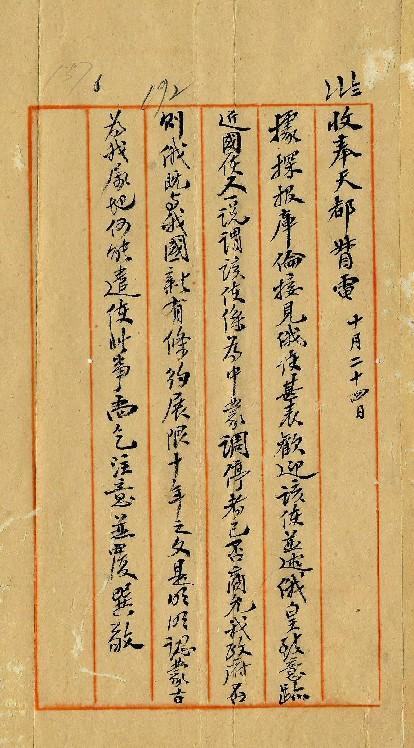 收奉天都督電 十月二十四日
據探报庫倫接見俄使甚表歡迎該使並述俄皇致意
近國使又一说謂該使係為中蒙調停者已否商允我政府
則俄既与我國新有條約展限十年之文是明明認蒙古
为我屬地何能遣使此事両乞注意並覆 巽敬
192
(37)